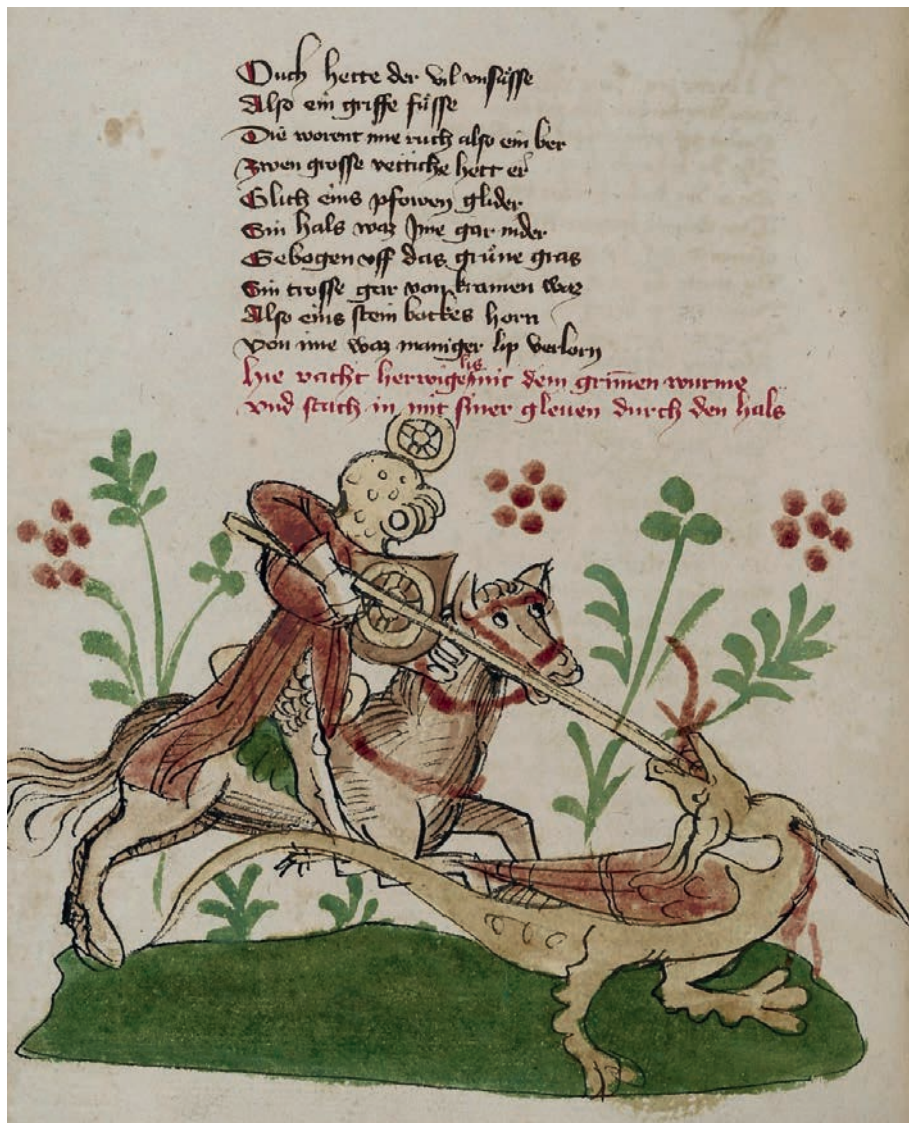 Ouch hette der vil vnsüsse
Also ein griffe füsse
Die worent ime ruch also ein ber
Zwen grosse vettiche hett er
Glich eins pfowen glider
Sin hals waz Ime gar nider
Gebogen vff das grüne gras
Sin trosse gar von kramen waz
Also eins stein bockes horn
Von ime waz maniger lip verlorn
hie vacht herwigelis mit dem grimen wurme
vnd stach in mit siner gleuen durch den hals